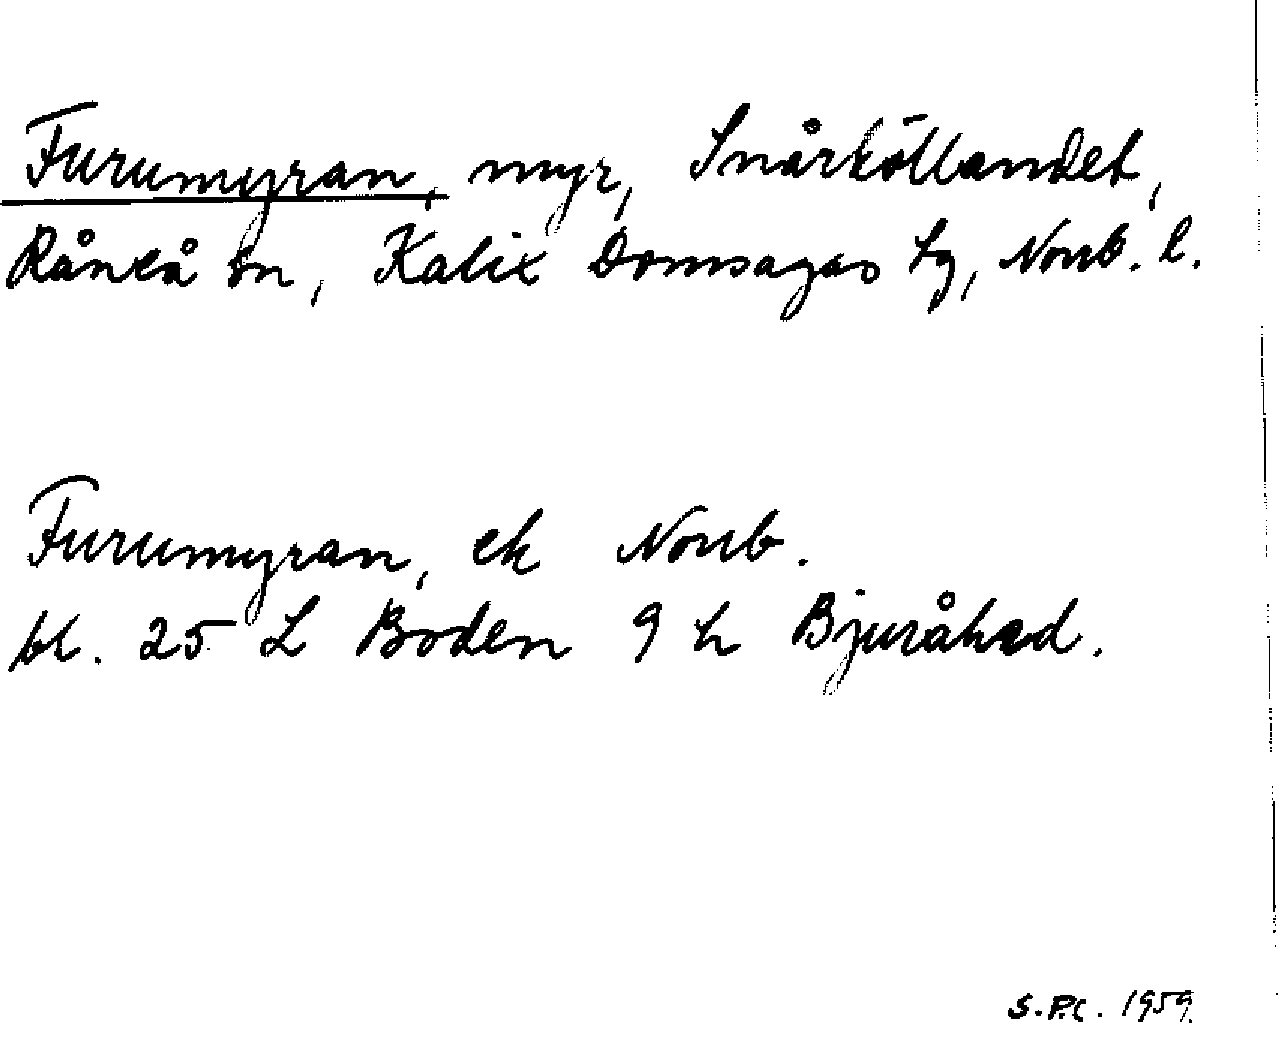 Furumyran, myr, Snårköllandet,
Råneå sn, Kalix Domsagas tg, Norrb. l.
Furumyran, ek Norrb.
bl. 25 L Boden 9 h Bjuråhed.
S.P.C. 1959.